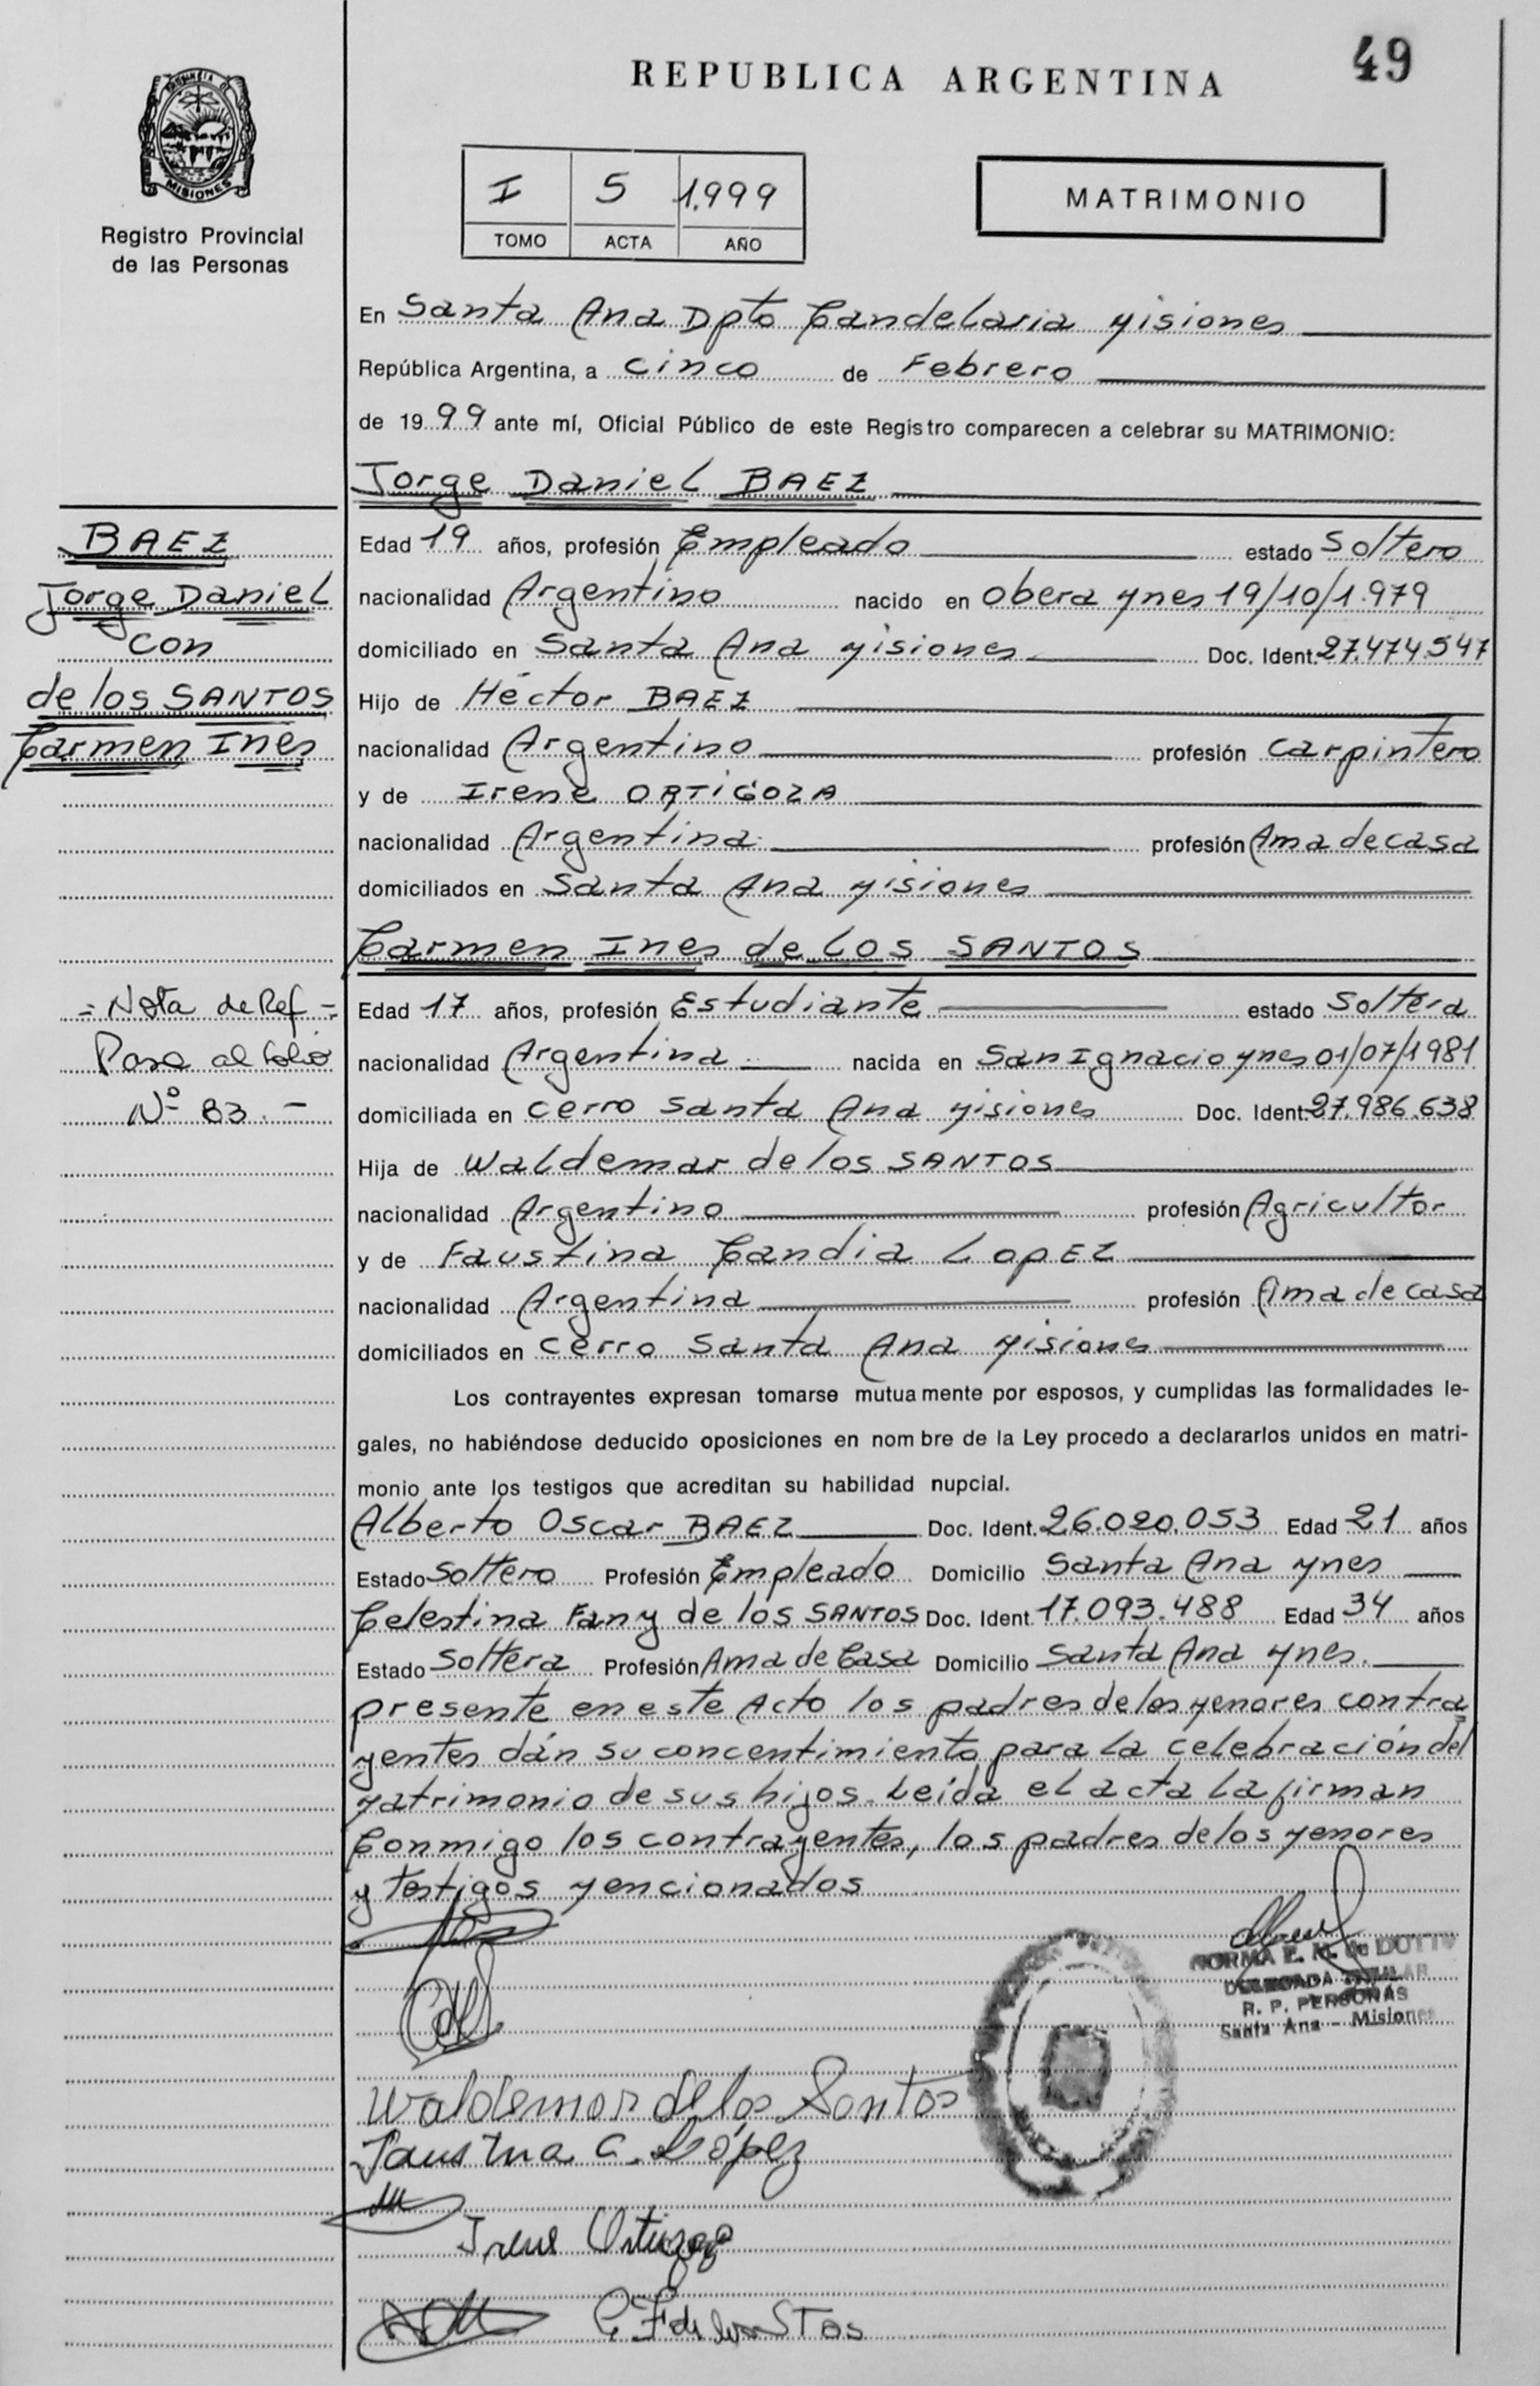 49
REPUBLICA ARGENTINA
MISIONES
Registro Provincial
de las Personas
I 5 1.999
TOMO ACTA AÑO
MATRIMONIO
En Santa Ana Dpto Candelaria Misiones
República Argentina, a cinco de Febrero
de 1999 ante mí, Oficial Público de este Registro comparecen a celebrar su MATRIMONIO:
Jorge Daniel BAEZ
BAEZ
Jorge Daniel
con
de los SANTOS
Carmen Ines
Edad 19 años, profesión Empleado estado Soltero
nacionalidad Argentino nacido en Obera Mnes 19/10/1.979
domiciliado en Santa Ana Misiones Doc. Ident. 27.474.547
Hijo de Héctor BAEZ
nacionalidad Argentino profesión carpintero
y de Irene ORTIGOZA
nacionalidad Argentina profesión Ama de casa
domiciliados en Santa Ana Misiones
Carmen Ines de los SANTOS
= Nota de Ref =
Pasa al folio
Nº 83.-
Edad 17 años, profesión Estudiante estado Soltera
nacionalidad Argentina nacida en San Ignacio Mnes 01/07/1981
domiciliada en cerro Santa Ana Misiones Doc. Ident. 27.986.638
Hija de Waldemar de los SANTOS
nacionalidad Argentino profesión Agricultor
y de Faustina Candia LopEz
nacionalidad Argentina profesión Ama de casa
domiciliados en cerro Santa Ana Misiones
Los contrayentes expresan tomarse mutuamente por esposos, y cumplidas las formalidades le-
gales, no habiéndose deducido oposiciones en nombre de la Ley procedo a declararlos unidos en matri-
monio ante los testigos que acreditan su habilidad nupcial.
Alberto Oscar BAEZ Doc. Ident. 26.020.053 Edad 21 años
Estado Soltero Profesión Empleado Domicilio Santa Ana Mnes
Celestina Fany de los SANTOS Doc. Ident. 17.093.488 Edad 34 años
Estado Soltera Profesión Ama de Casa Domicilio Santa Ana Mnes.
presente en este Acto los padres de los Menores contra=
yentes dán su concentimiento para la celebración del
Matrimonio de sus hijos. Leída el acta la firman
Conmigo los contrayentes, los padres de los Menores
y Testigos Mencionados
NORMA E. M. de DOTTO
DELEGADA TITULAR
R. P. PERSONAS
Santa Ana - Misiones
Waldemar de los Santos
Faustina C. López
Irene Ortigoza
C F de los Stos